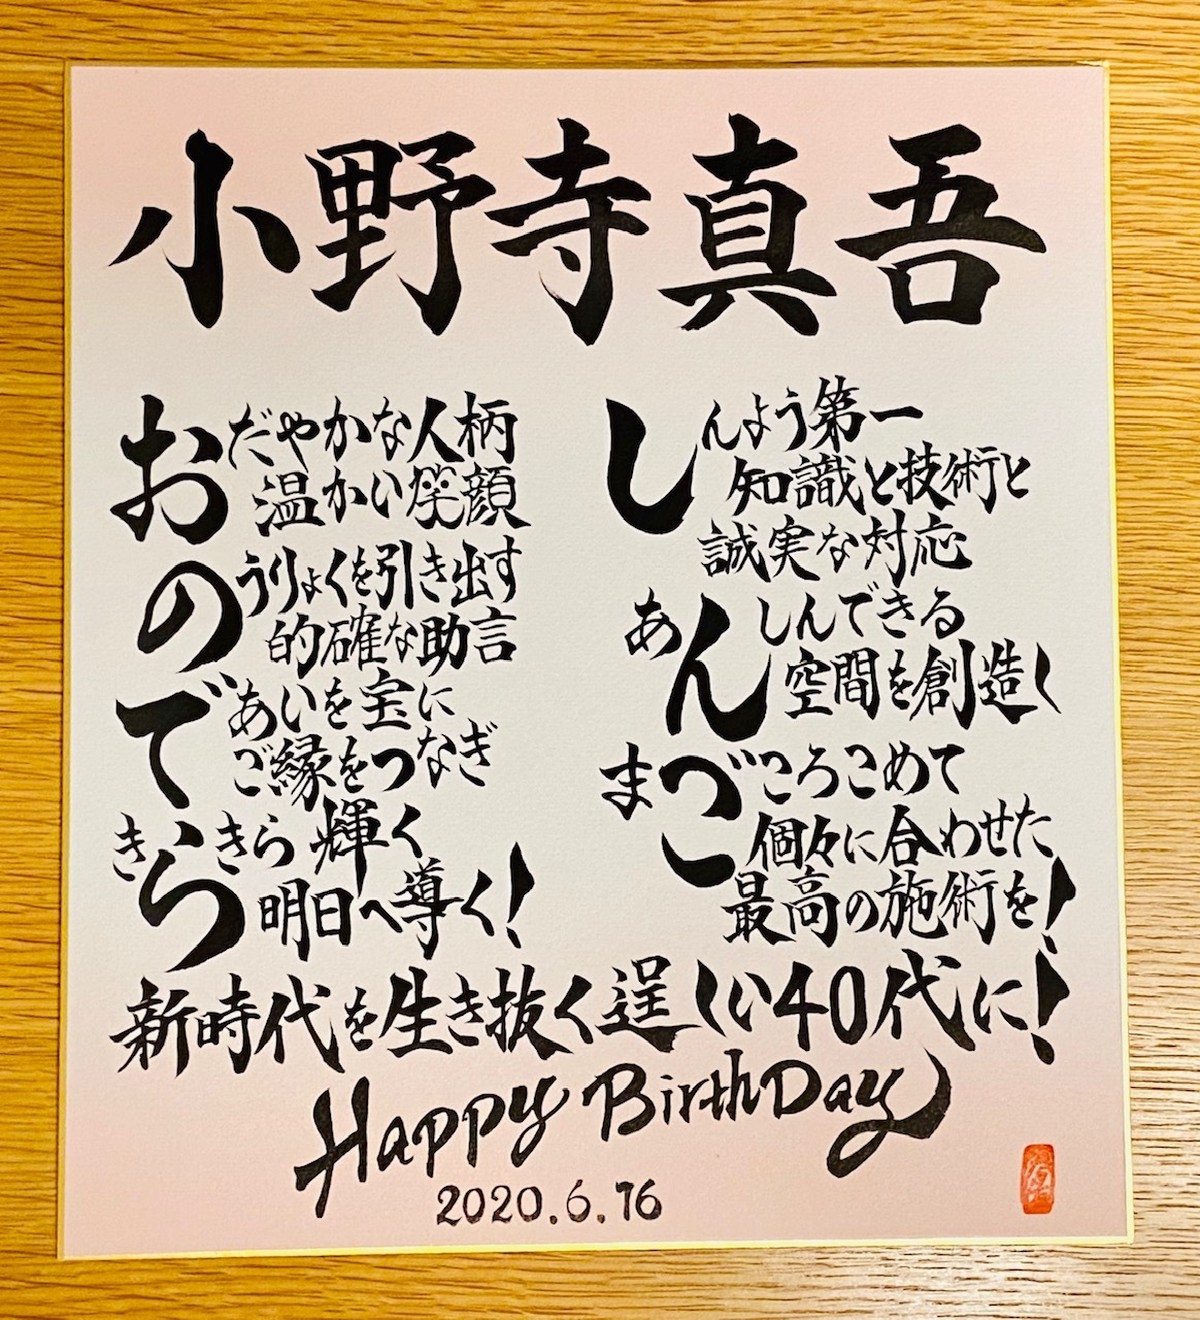 小野寺真吾
おだやかな人柄
温かい笑顔
のうりょくを引き出す
的確な助言
であいを宝に
ご縁をつなぎ
きらきら輝く
明日へ導く!
しんよう第一
知識と技術と
誠実な対応
あんしんできる
空間を創造し
まごころこめて
個々に合わせた
最高の施術を!
新時代を生き抜く逞しい40代に!
Happy BirthDay
2020.6.16